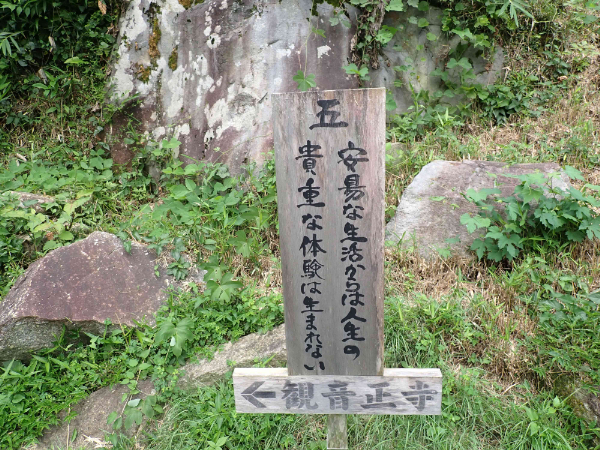 五
安易な生活からは人生の
貴重な体験は生まれない
←観音正寺